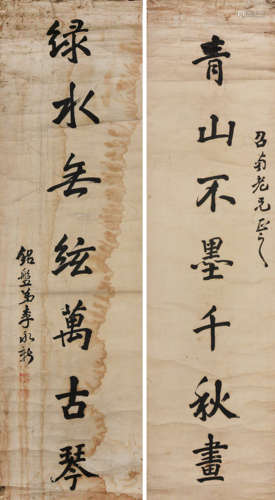 青山不墨千秋畫
召南老兄正之
綠水無絃萬古琴
銘盤弟李永新